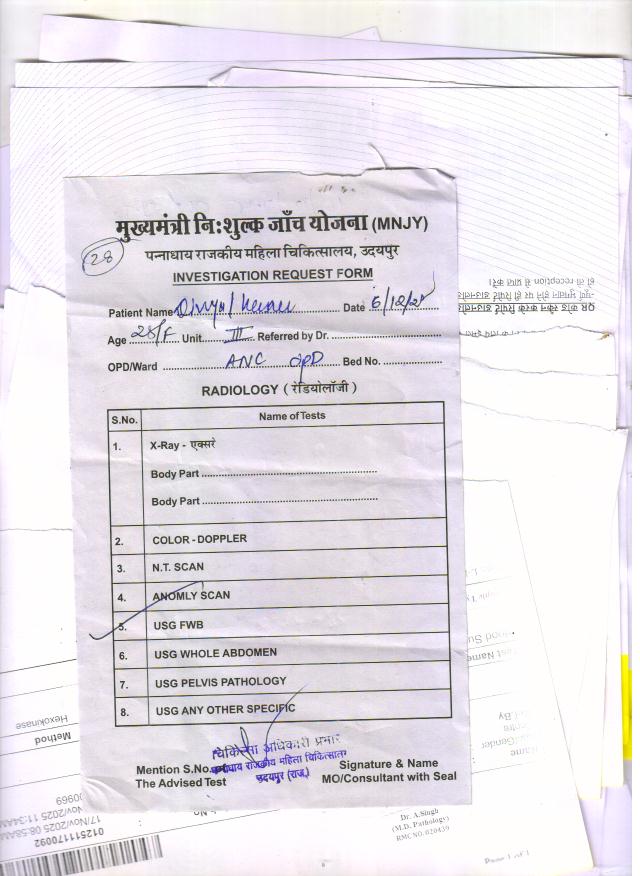 मुख्यमंत्री निःशुल्क जाँच योजना (MNJY)
28
पन्नाधाय राजकीय महिला चिकित्सालय, उदयपुर
INVESTIGATION REQUEST FORM
Patient Name Date 6/12/25
Age 28/F Unit III Referred by Dr.
OPD/Ward ANC OPD Bed No.
RADIOLOGY ( रेडियोलॉजी )
S.No. Name of Tests
1. X-Ray - एक्सरे
Body Part
Body Part
2. COLOR - DOPPLER
3. N.T. SCAN
4. ANOMLY SCAN
5. USG FWB
6. USG WHOLE ABDOMEN
7. USG PELVIS PATHOLOGY
8. USG ANY OTHER SPECIFIC
चिकित्सा अधिकारी प्रभारी
पन्नाधाय राजकीय महिला चिकित्सालय
उदयपुर (राज.)
Mention S.No. Signature & Name
The Advised Test MO/Consultant with Seal
हो तो reception से प्राप्त करें।
QR कोड स्कैन करके रिपोर्ट
Hexokinase
Method
17/Nov/2025 08:58AM
012511170092
Dr. A.Singh
(M.D. Pathology)
RMC NO. 020439
Page 1 of 1